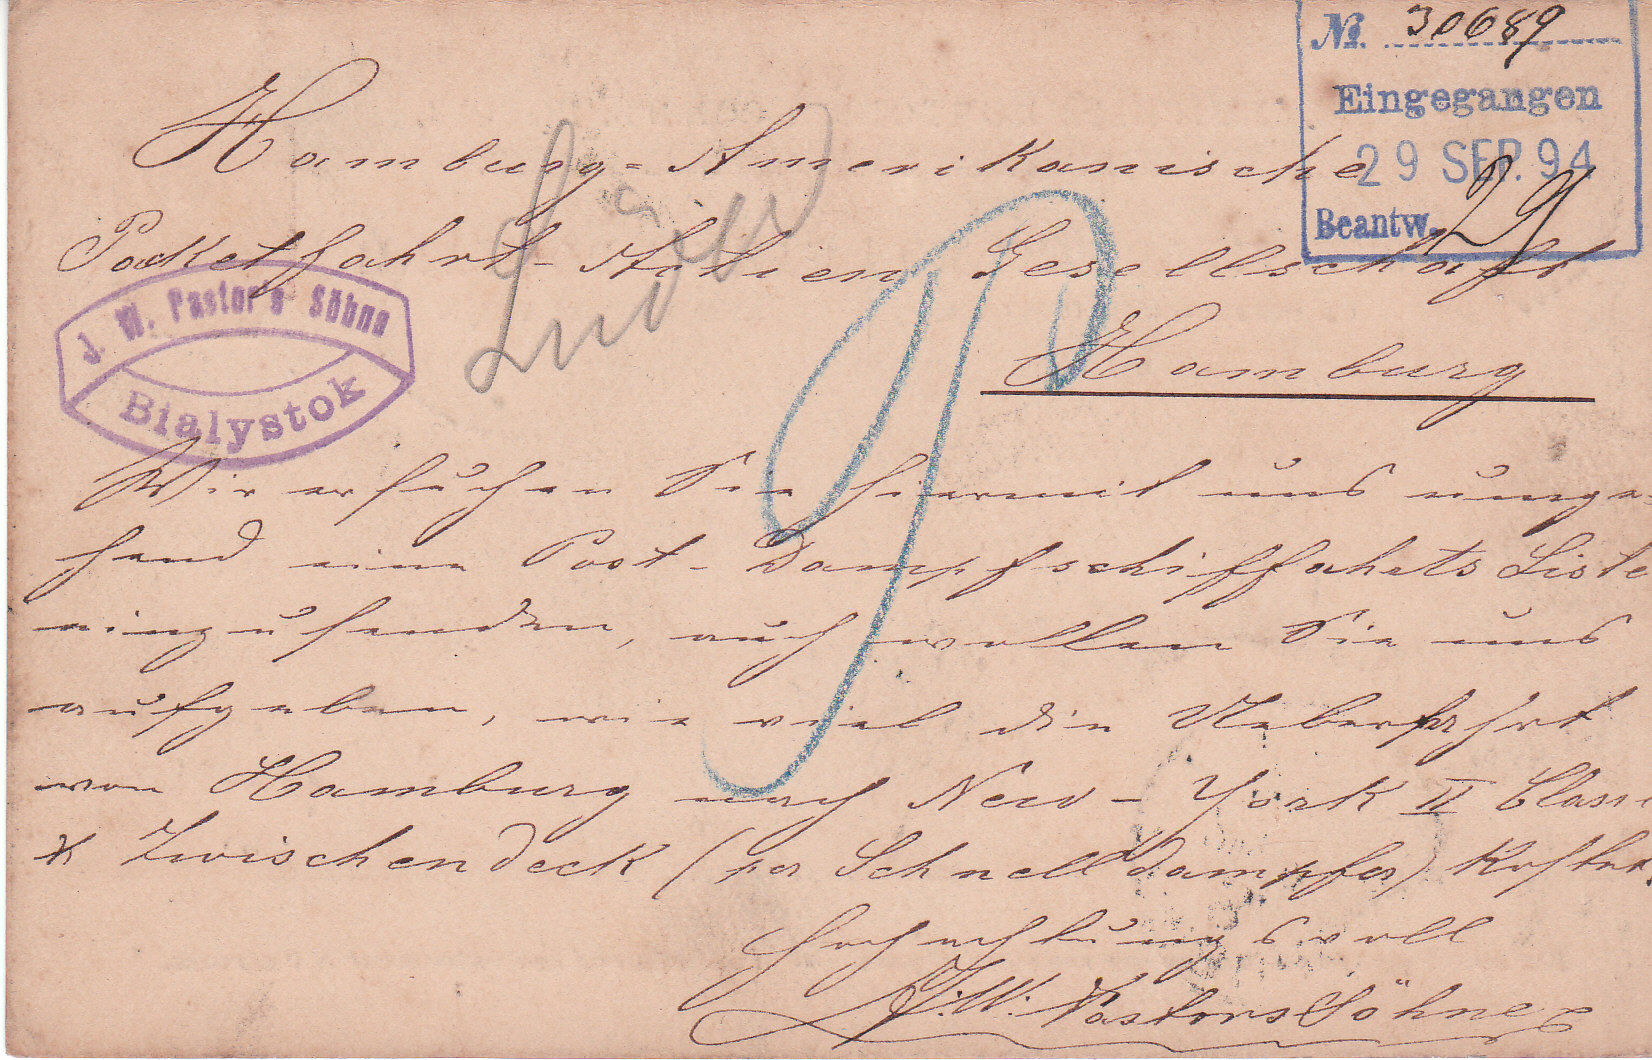 No. 30689
Eingegangen
29 SEP. 94
Beantw. 29
Hamburg-Amerikanische
Packetfahrt-Actien Gesellschaft
Hamburg
J. W. Pastor's Söhne
Bialystok
Wir ersuchen Sie hiermit uns umge-
hend eine Post-Dampfschiffahrts Liste
einzusenden, auch wollen Sie uns
aufgeben, wie viel die Ueberfahrt
von Hamburg nach New-York II Classe
& Zwischendeck (per Schnelldampfer) kostet.
Hochachtungsvoll
J. W. Pastors Söhne